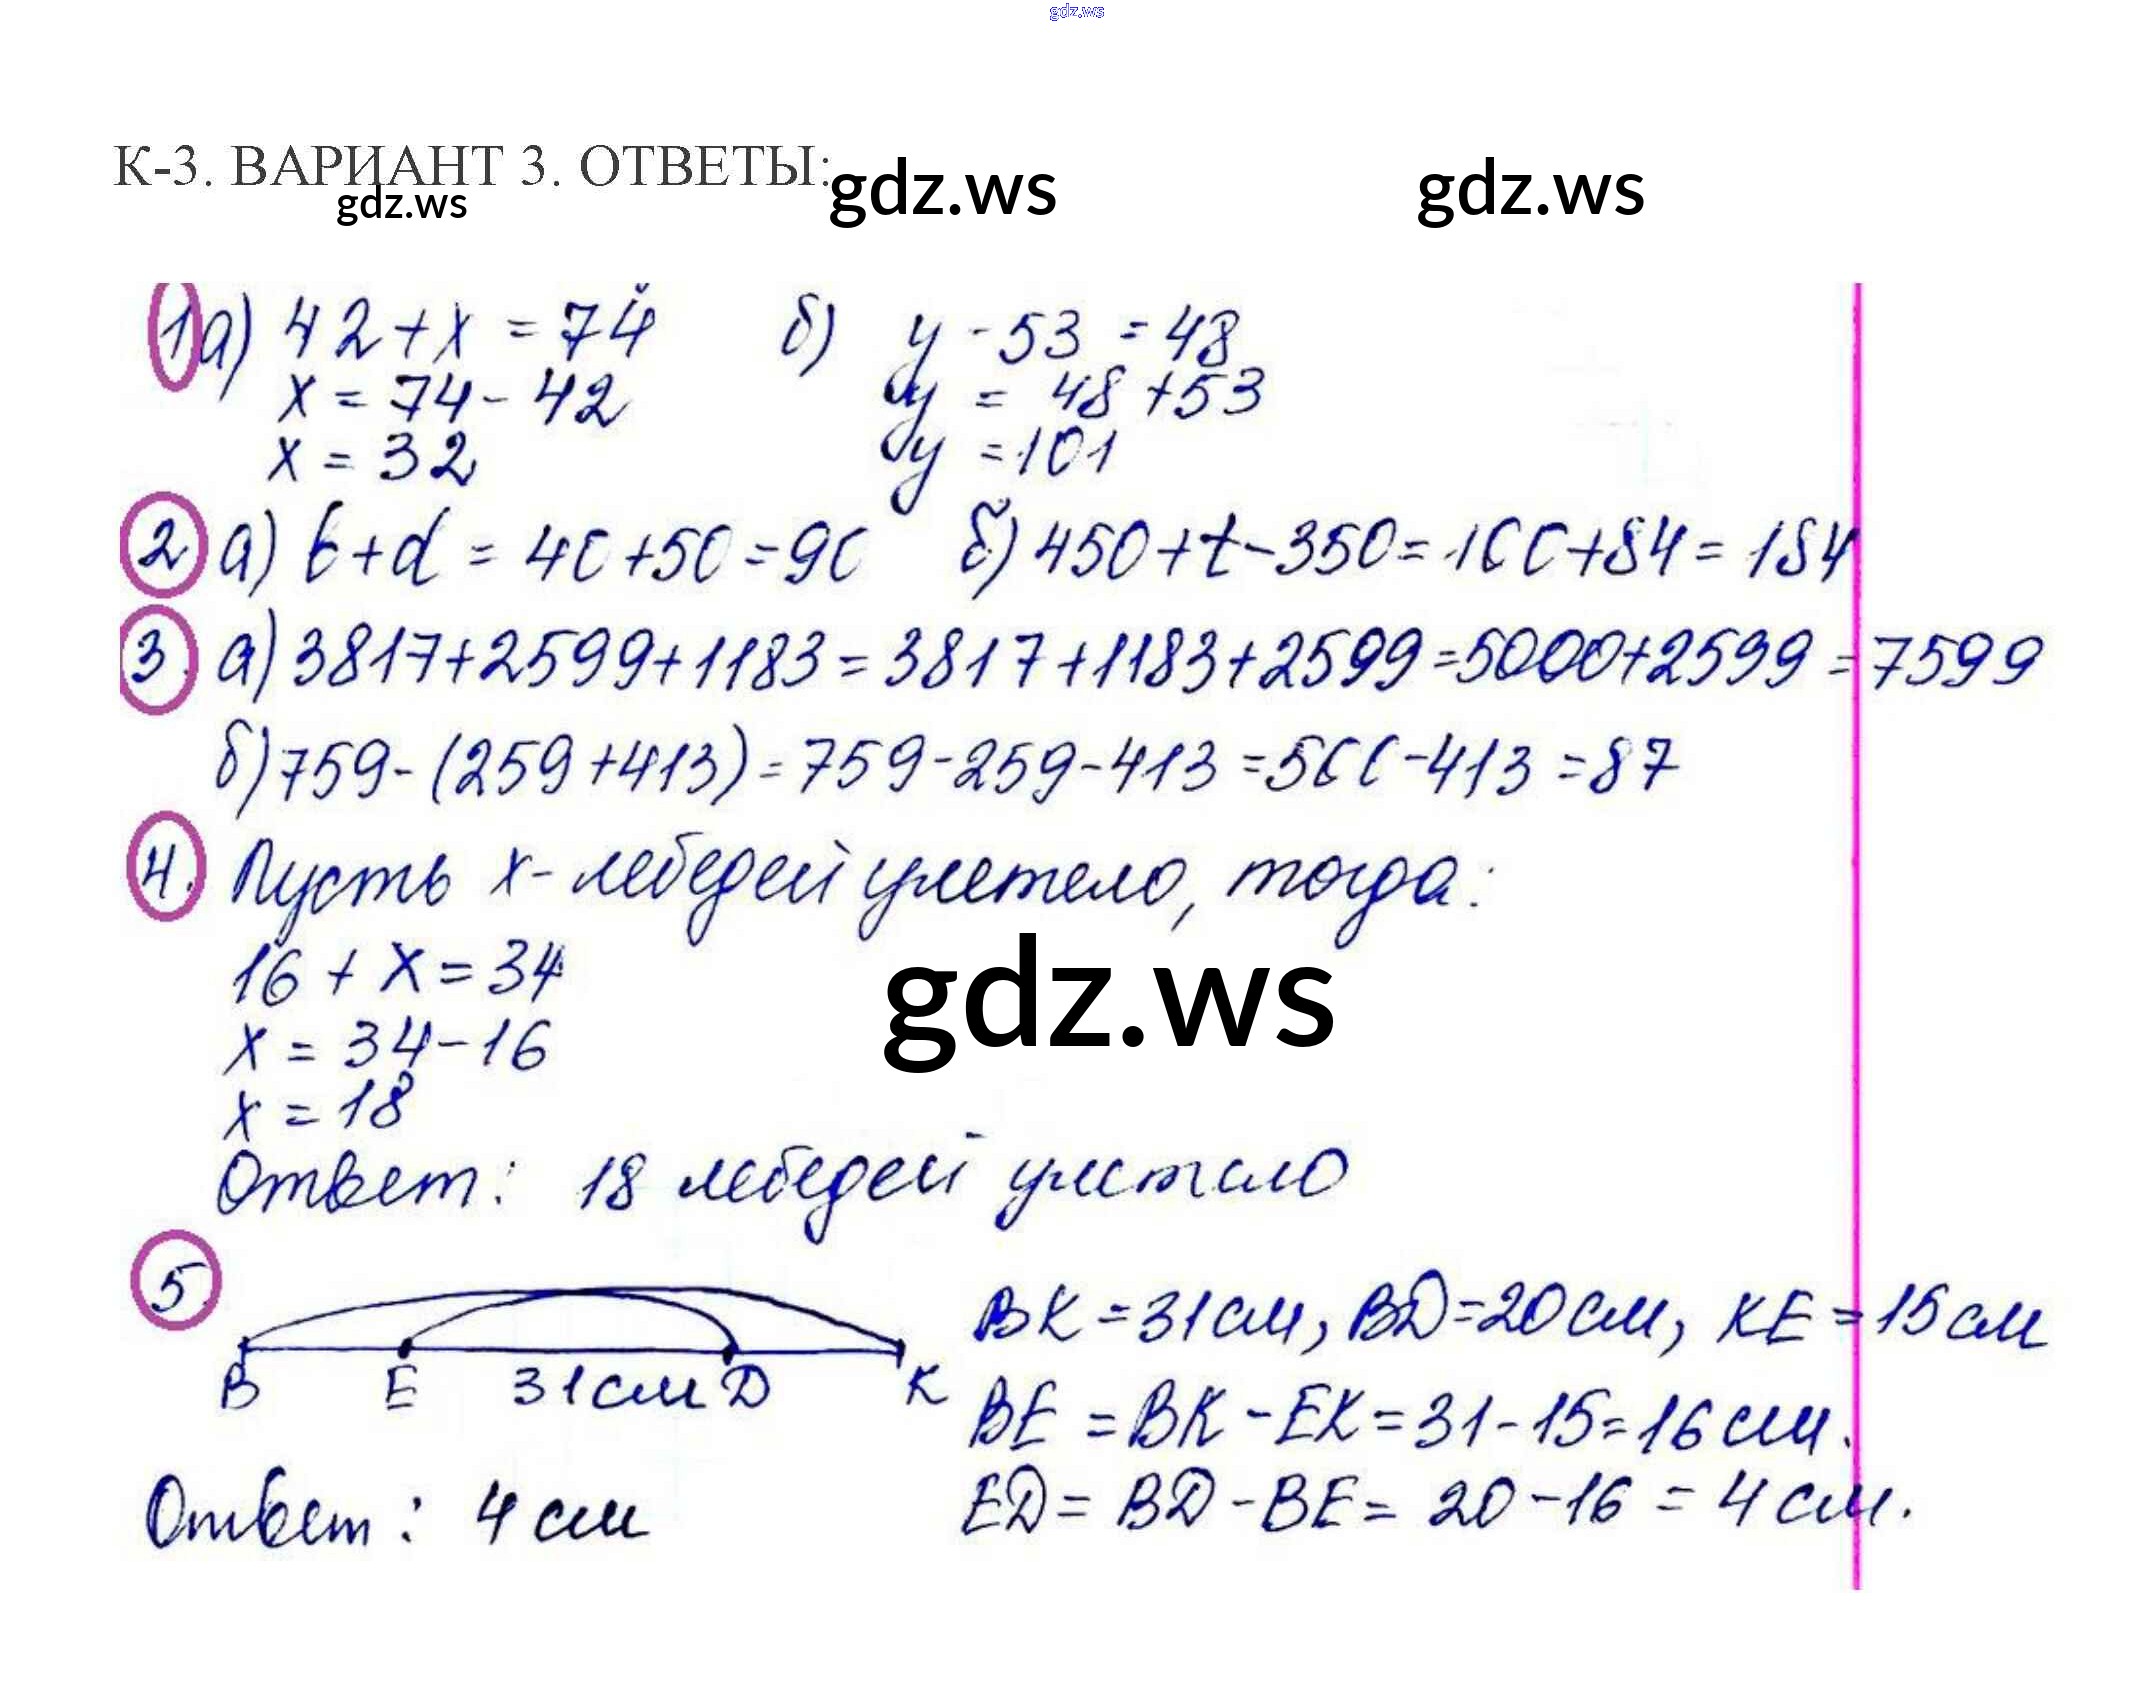 gdz.ws
К-3. ВАРИАНТ 3. ОТВЕТЫ:
gdz.ws gdz.ws gdz.ws
1 а) 42+x = 74 б) y - 53 = 48
x = 74 - 42 y = 48 + 53
x = 32 y = 101
2 а) b+d = 40+50 = 90 б) 450+t-350 = 100+84 = 184
3. а) 3817+2599+1183 = 3817+1183+2599 = 5000+2599 = 7599
б) 759-(259+413) = 759-259-413 = 500-413 = 87
4. Пусть x - лебедей улетело, тогда:
16 + x = 34
gdz.ws
x = 34-16
x = 18
Ответ: 18 лебедей улетело
5. BK = 31 см, BD = 20 см, KE = 15 см
B E 31 см D K
BE = BK - EK = 31-15 = 16 см.
ED = BD - BE = 20-16 = 4 см.
Ответ: 4 см